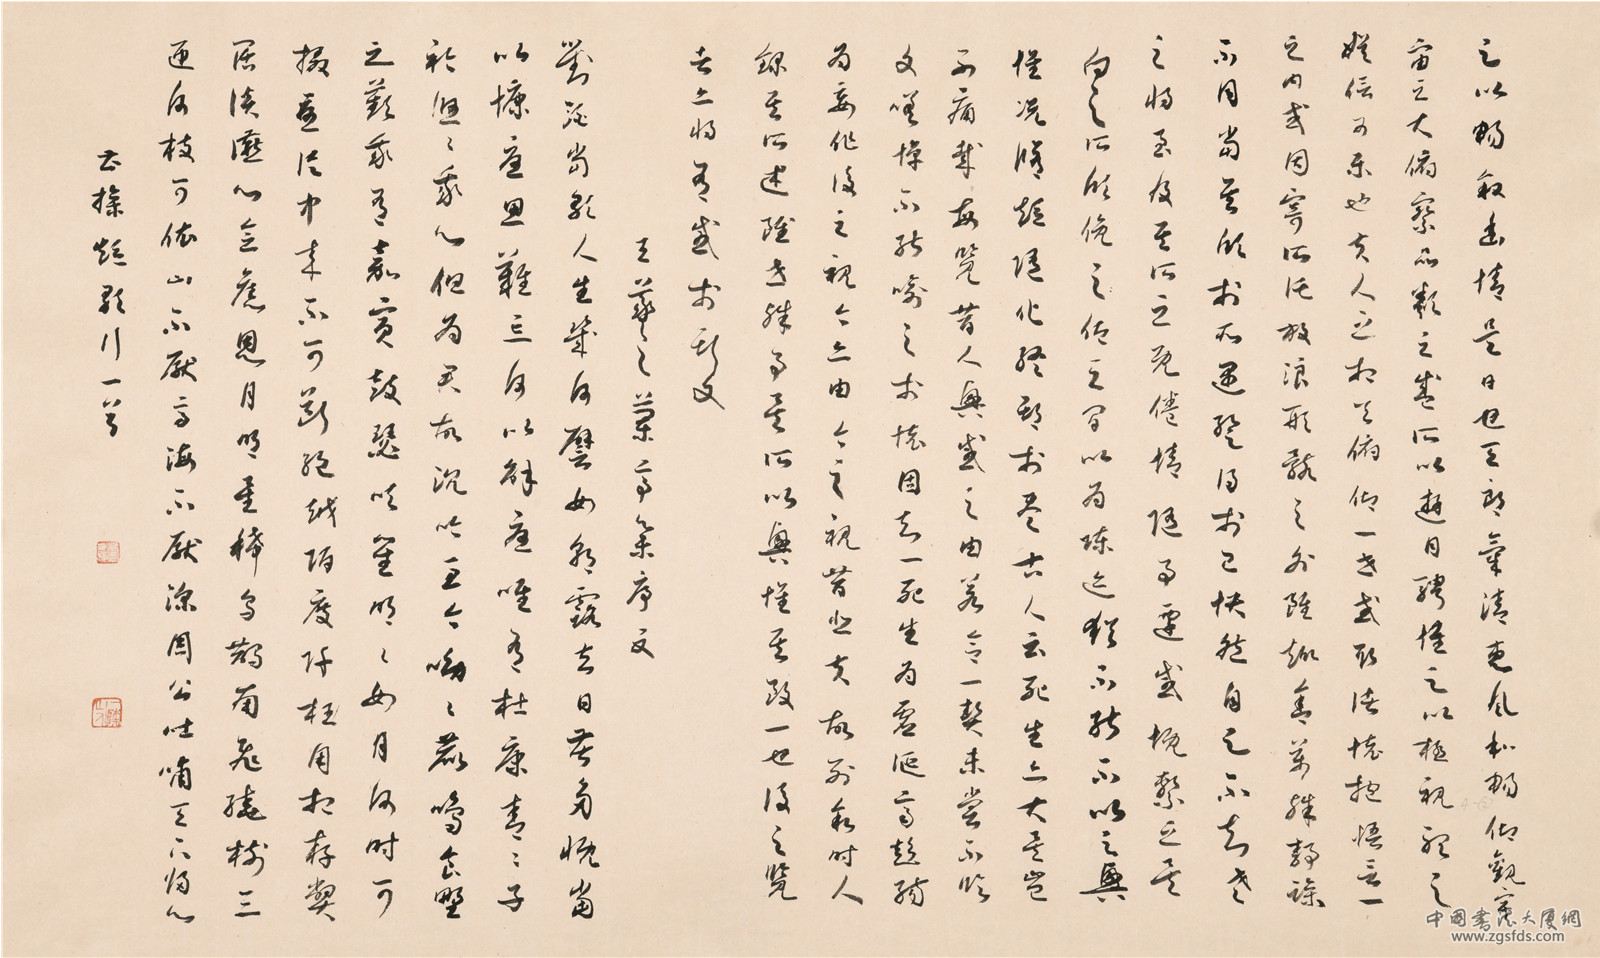 之以暢敘幽情是日也天朗氣清惠風和暢仰觀宇
宙之大俯察品類之盛所以遊目騁懷足以極視聽之
娛信可樂也夫人之相與俯仰一世或取諸懷抱悟言一
之內或因寄所託放浪形骸之外雖趣舍萬殊靜躁
不同當其欣於所遇暫得於己快然自足不知老
之將至及其所之既倦情隨事遷感慨繫之矣
向之所欣俛仰之間以為陳迹猶不能不以之興
懷況脩短隨化終期於盡古人云死生亦大矣豈
不痛哉每覽昔人興感之由若合一契未嘗不臨
文嗟悼不能喻之於懷固知一死生為虛誕齊彭殤
為妄作後之視今亦由今之視昔悲夫故列敘時人
錄其所述雖世殊事異所以興懷其致一也後之覽
者亦將有感於斯文
王羲之蘭亭集序文
對酒當歌人生幾何譬如朝露去日苦多慨當
以慷憂思難忘何以解憂唯有杜康青青子
衿悠悠我心但為君故沉吟至今呦呦鹿鳴食野
之蘋我有嘉賓鼓瑟吹笙明明如月何時可
掇憂從中來不可斷絕越陌度阡枉用相存契
闊談讌心念舊恩月明星稀烏鵲南飛繞樹三
匝何枝可依山不厭高海不厭深周公吐哺天下歸心
曹操短歌行一首
中国書法大厦網
www.zgsfds.com